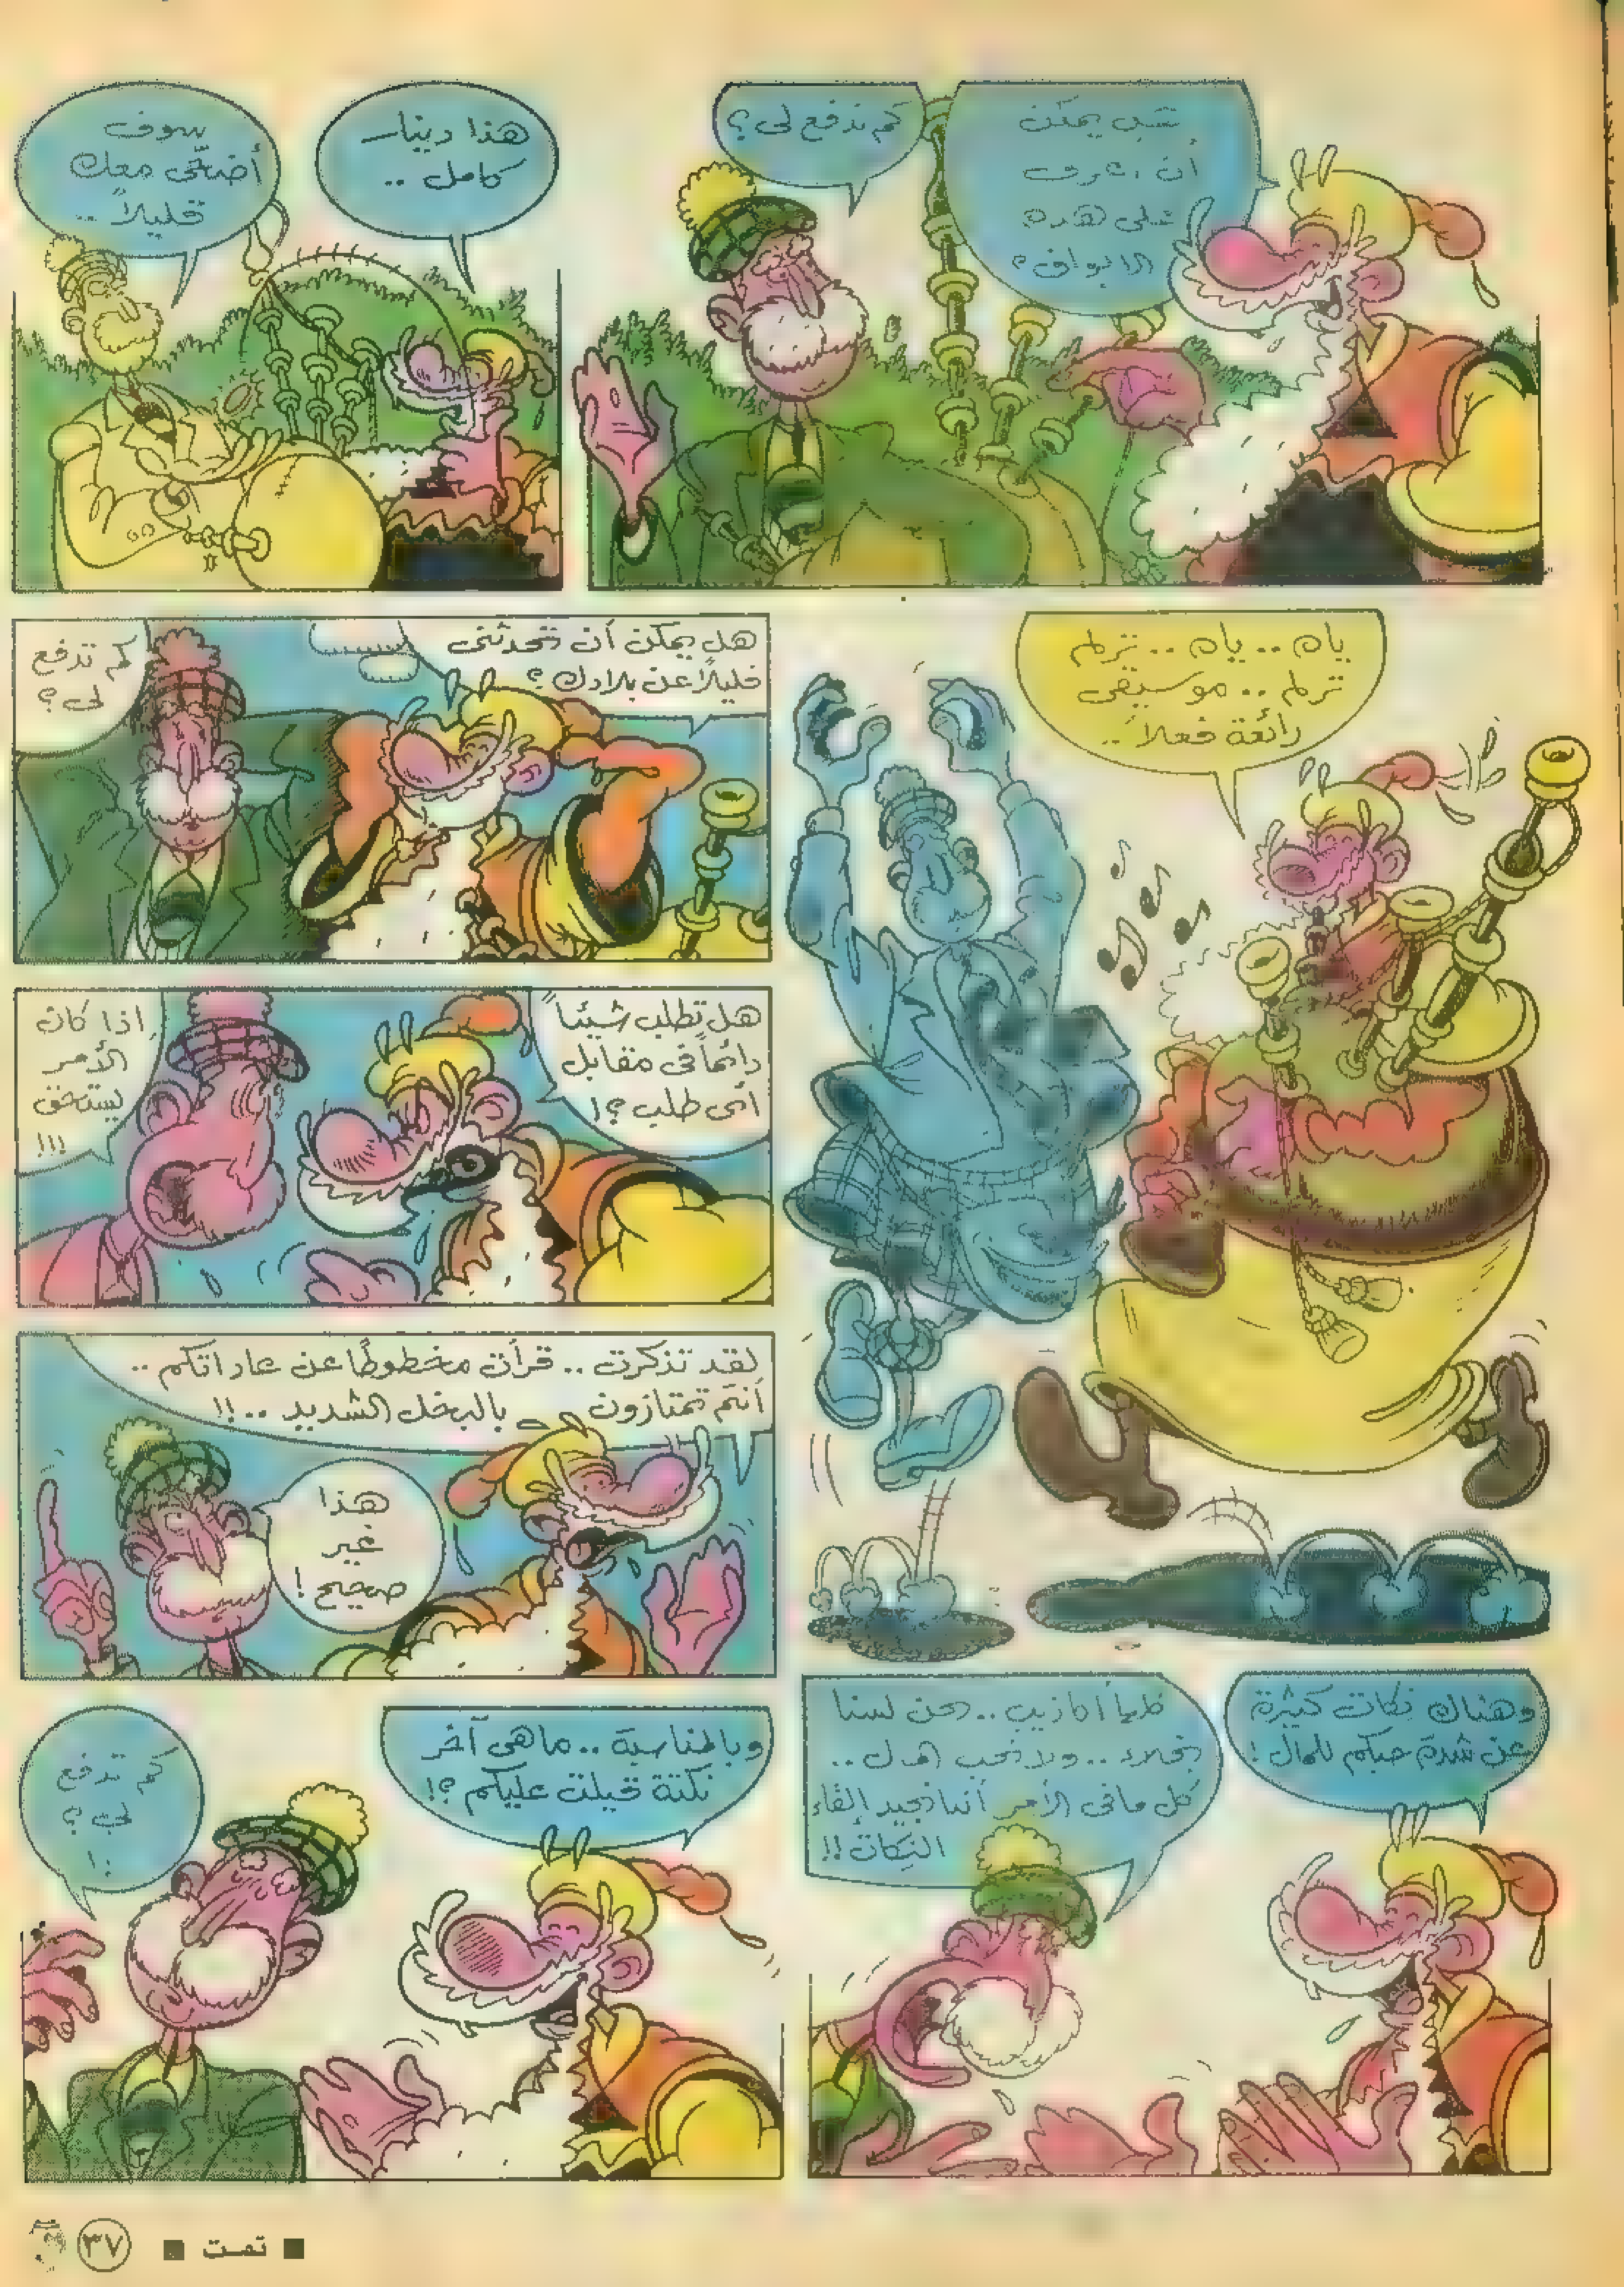 هل يمكن
أن أعزف
على هذه
الأبواق؟
كم تدفع لى؟
هذا دينار
كامل ..
سوف
أضحّى معك
قليلاً ..
ياه .. ياه .. ترلم
ترلم .. موسيقى
رائعة فعلاً ..
هل يمكن أن تحدثنى
قليلاً عن بلادك؟
كم تدفع
لى؟
هل تطلب شيئاً
دائماً فى مقابل
أى طلب؟!
إذا كان
الأمر
يستحق
!!!
لقد تذكرت .. قرأت مخطوطًا عن عاداتكم ..
أنتم تمتازون بالبخل الشديد ..!!
هذا
غير
صحيح!
وهناك نكات كثيرة
عن شدة حبكم للمال!
كلها أكاذيب .. نحن لسنا
بخلاء .. ولا نحب المال ..
كل مافى الأمر أننا نجيد إلقاء
النكات!!
وبالمناسبة .. ماهى آخر
نكتة قيلت عليكم؟!
كم تدفع
لى؟
!
■ تمت ■ ٣٧